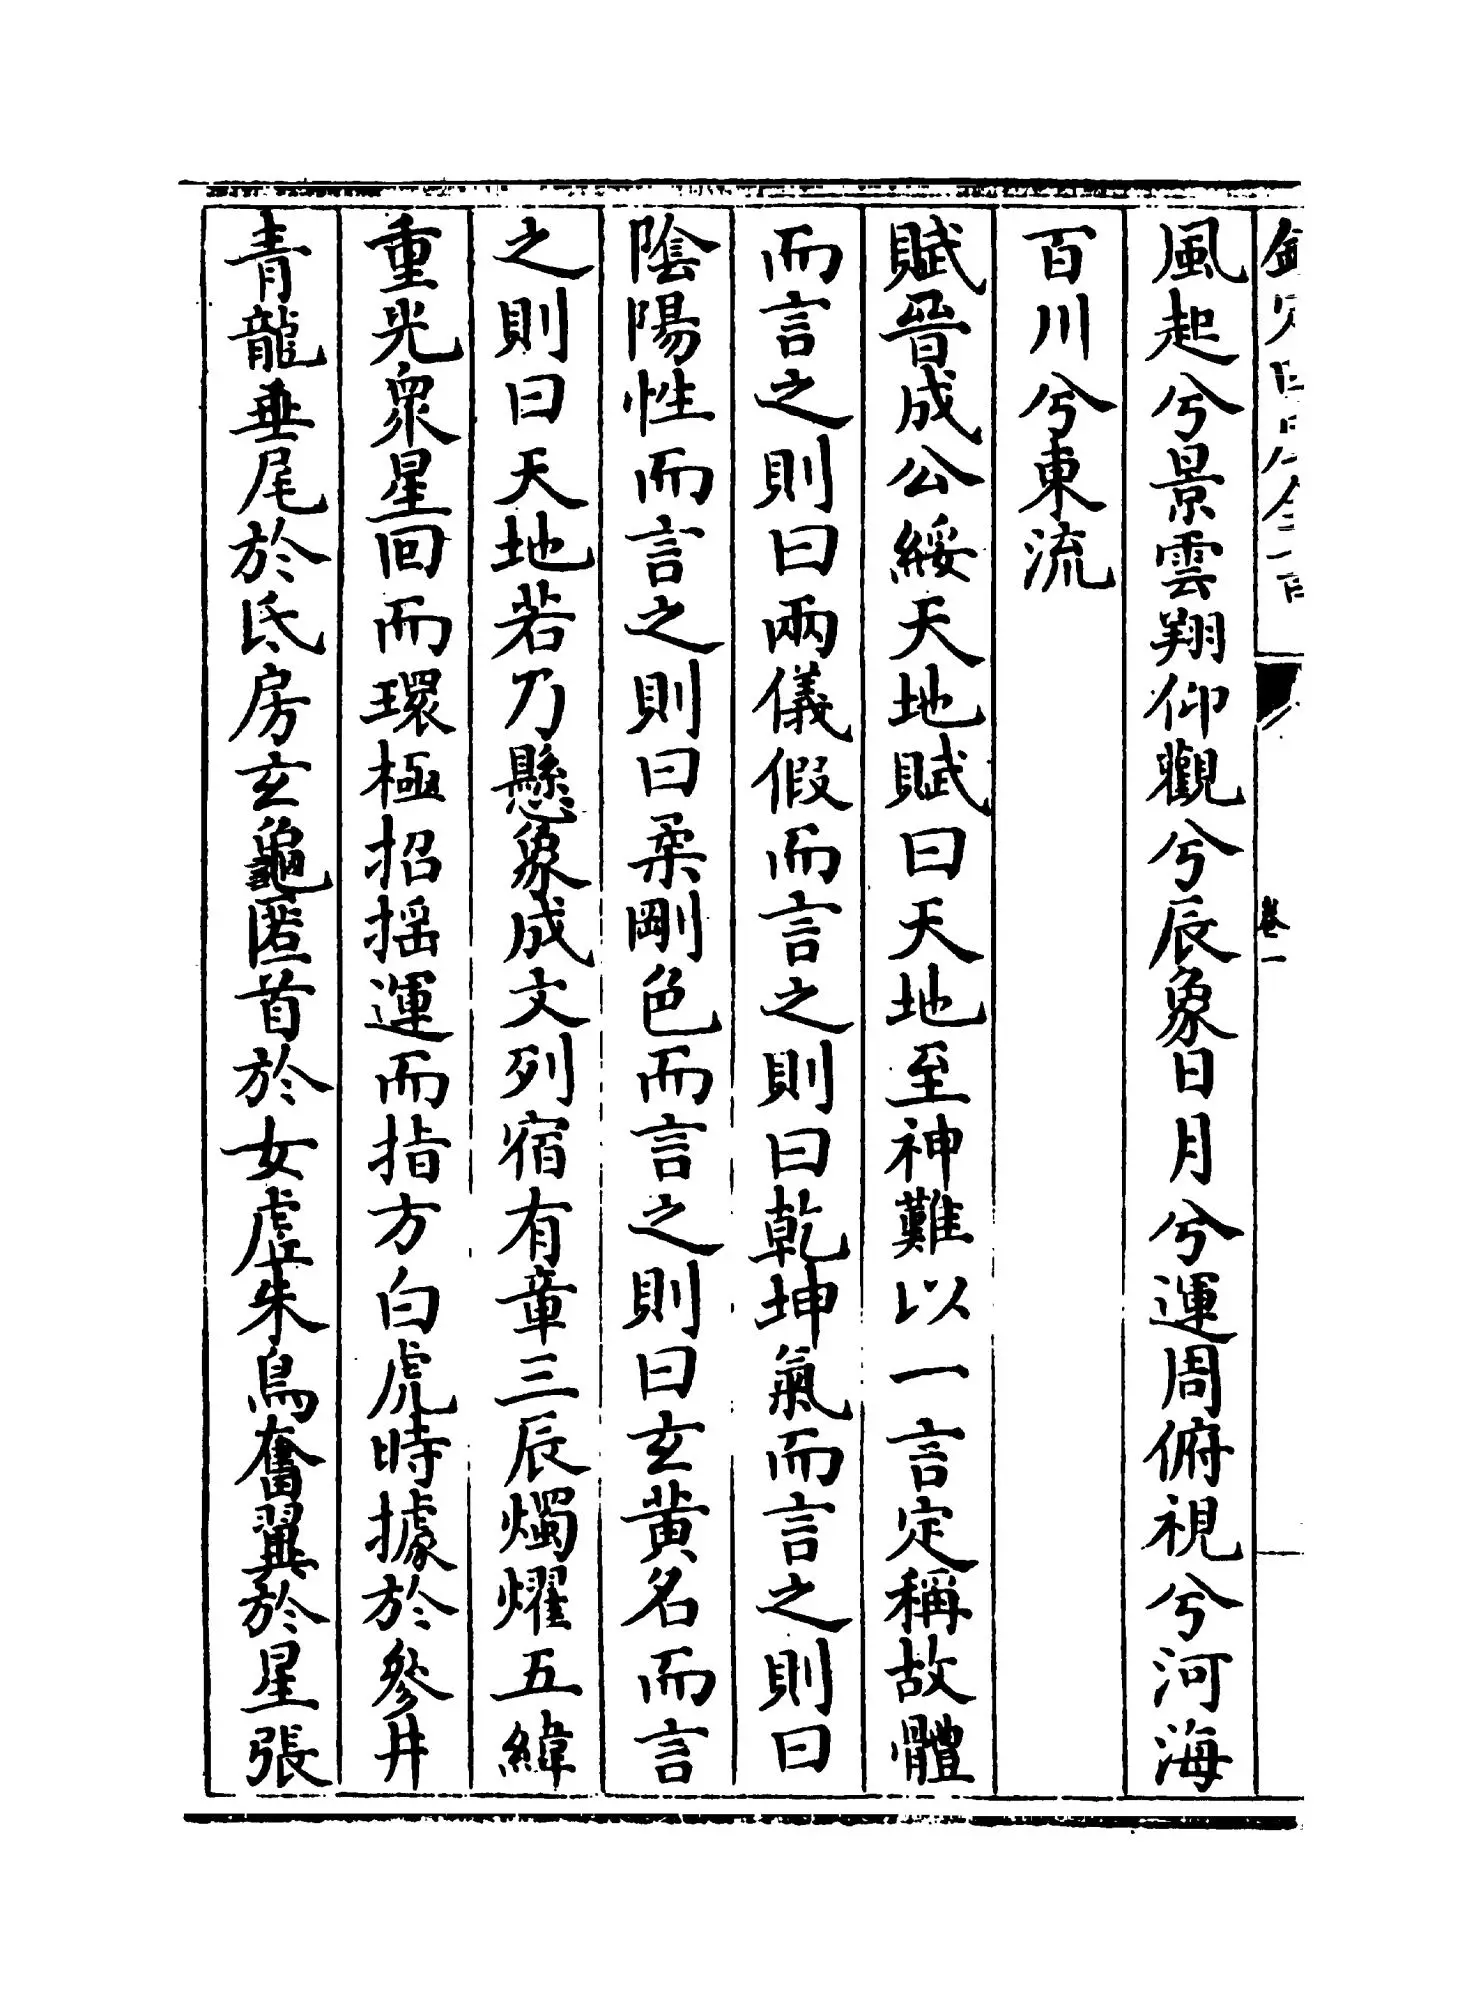 風起兮景雲翔仰觀兮辰象日月兮運周俯視兮河海
百川兮東流
賦晉成公綏天地賦曰天地至神難以一言定稱故體
而言之則曰兩儀假而言之則曰乾坤氣而言之則曰
陰陽性而言之則曰柔剛色而言之則曰玄黃名而言
之則曰天地若乃懸象成文列宿有章三辰燭燿五緯
重光衆星回而環極招揺運而指方白虎時據於參井
青龍垂尾於氐房玄龜匿首於女虛朱鳥奮翼於星張
卷一